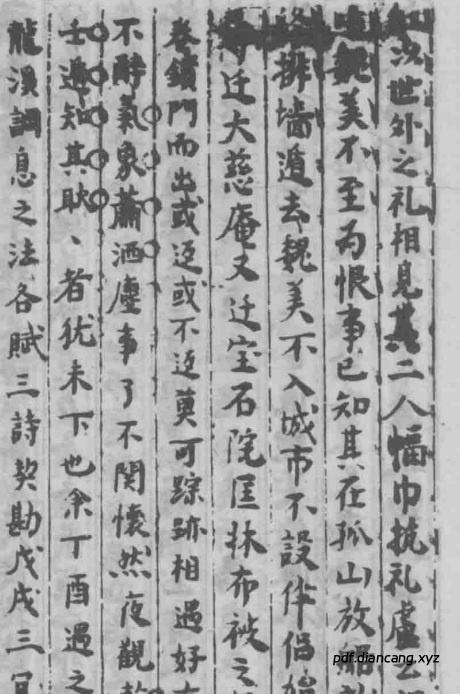 以世外之礼相見其二人幅巾抗礼盧公
魏美不至為恨事已知其在孤山放
排墻遁去魏美不入城市不設伴侶始
迁大慈庵又迁宝石院匡牀布被之
卷鎖門而出或返或不返莫可踪跡相遇好
不醉氣象蕭洒塵事了不関懷然夜觀
壬遁知其耿、者犹未下也余丁酉遇之
龍溪調息之法各賦三詩契勘戊戌三
pdf.diancang.xyz